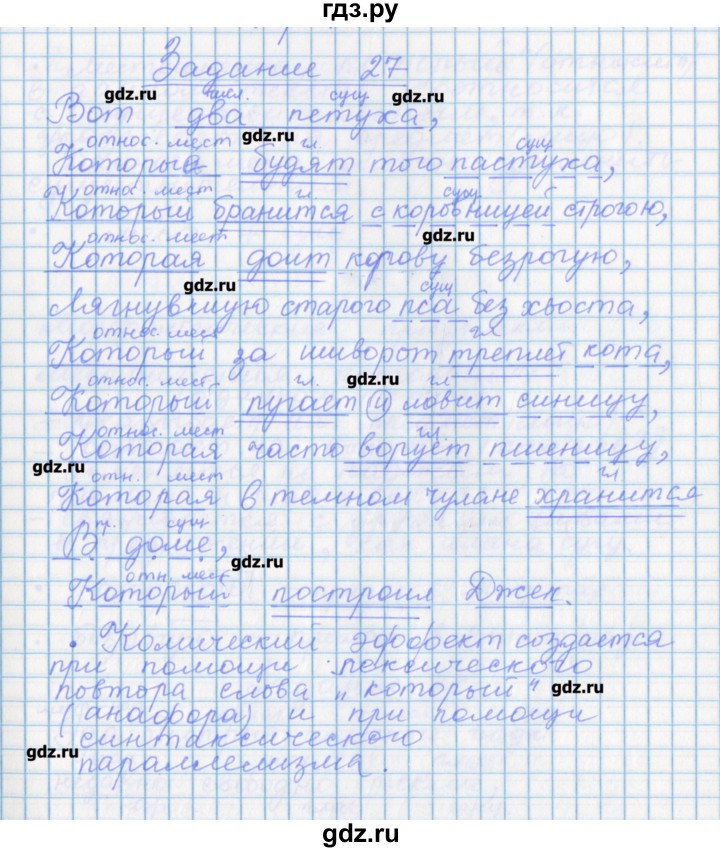 гдз.ру
Задание 27
gdz.ru числ. сущ gdz.ru
Вот два петуха,
относ. мест gdz.ru гл. сущ
Которые будят того пастуха,
относ. мест гл сущ
Который бранится с коровницей строгою,
относ. мест gdz.ru
Которая доит корову безрогую,
gdz.ru сущ
Лягнувшую старого пса без хвоста,
относ. мест гл
Который за шиворот треплет кота,
относ. мест гл. gdz.ru гл
Который пугает и ловит синицу,
относ. мест гл.
Которая часто ворует пшеницу,
gdz.ru отн. мест гл
Которая в темном чулане хранится
пр. сущ
В доме,
gdz.ru
отн. мест
Который построил Джек.
• Комический эффект создается
при помощи лексического
повтора слова „который“ gdz.ru
(анафора) и при помощи
синтаксического
gdz.ru
параллелизма.
gdz.ru